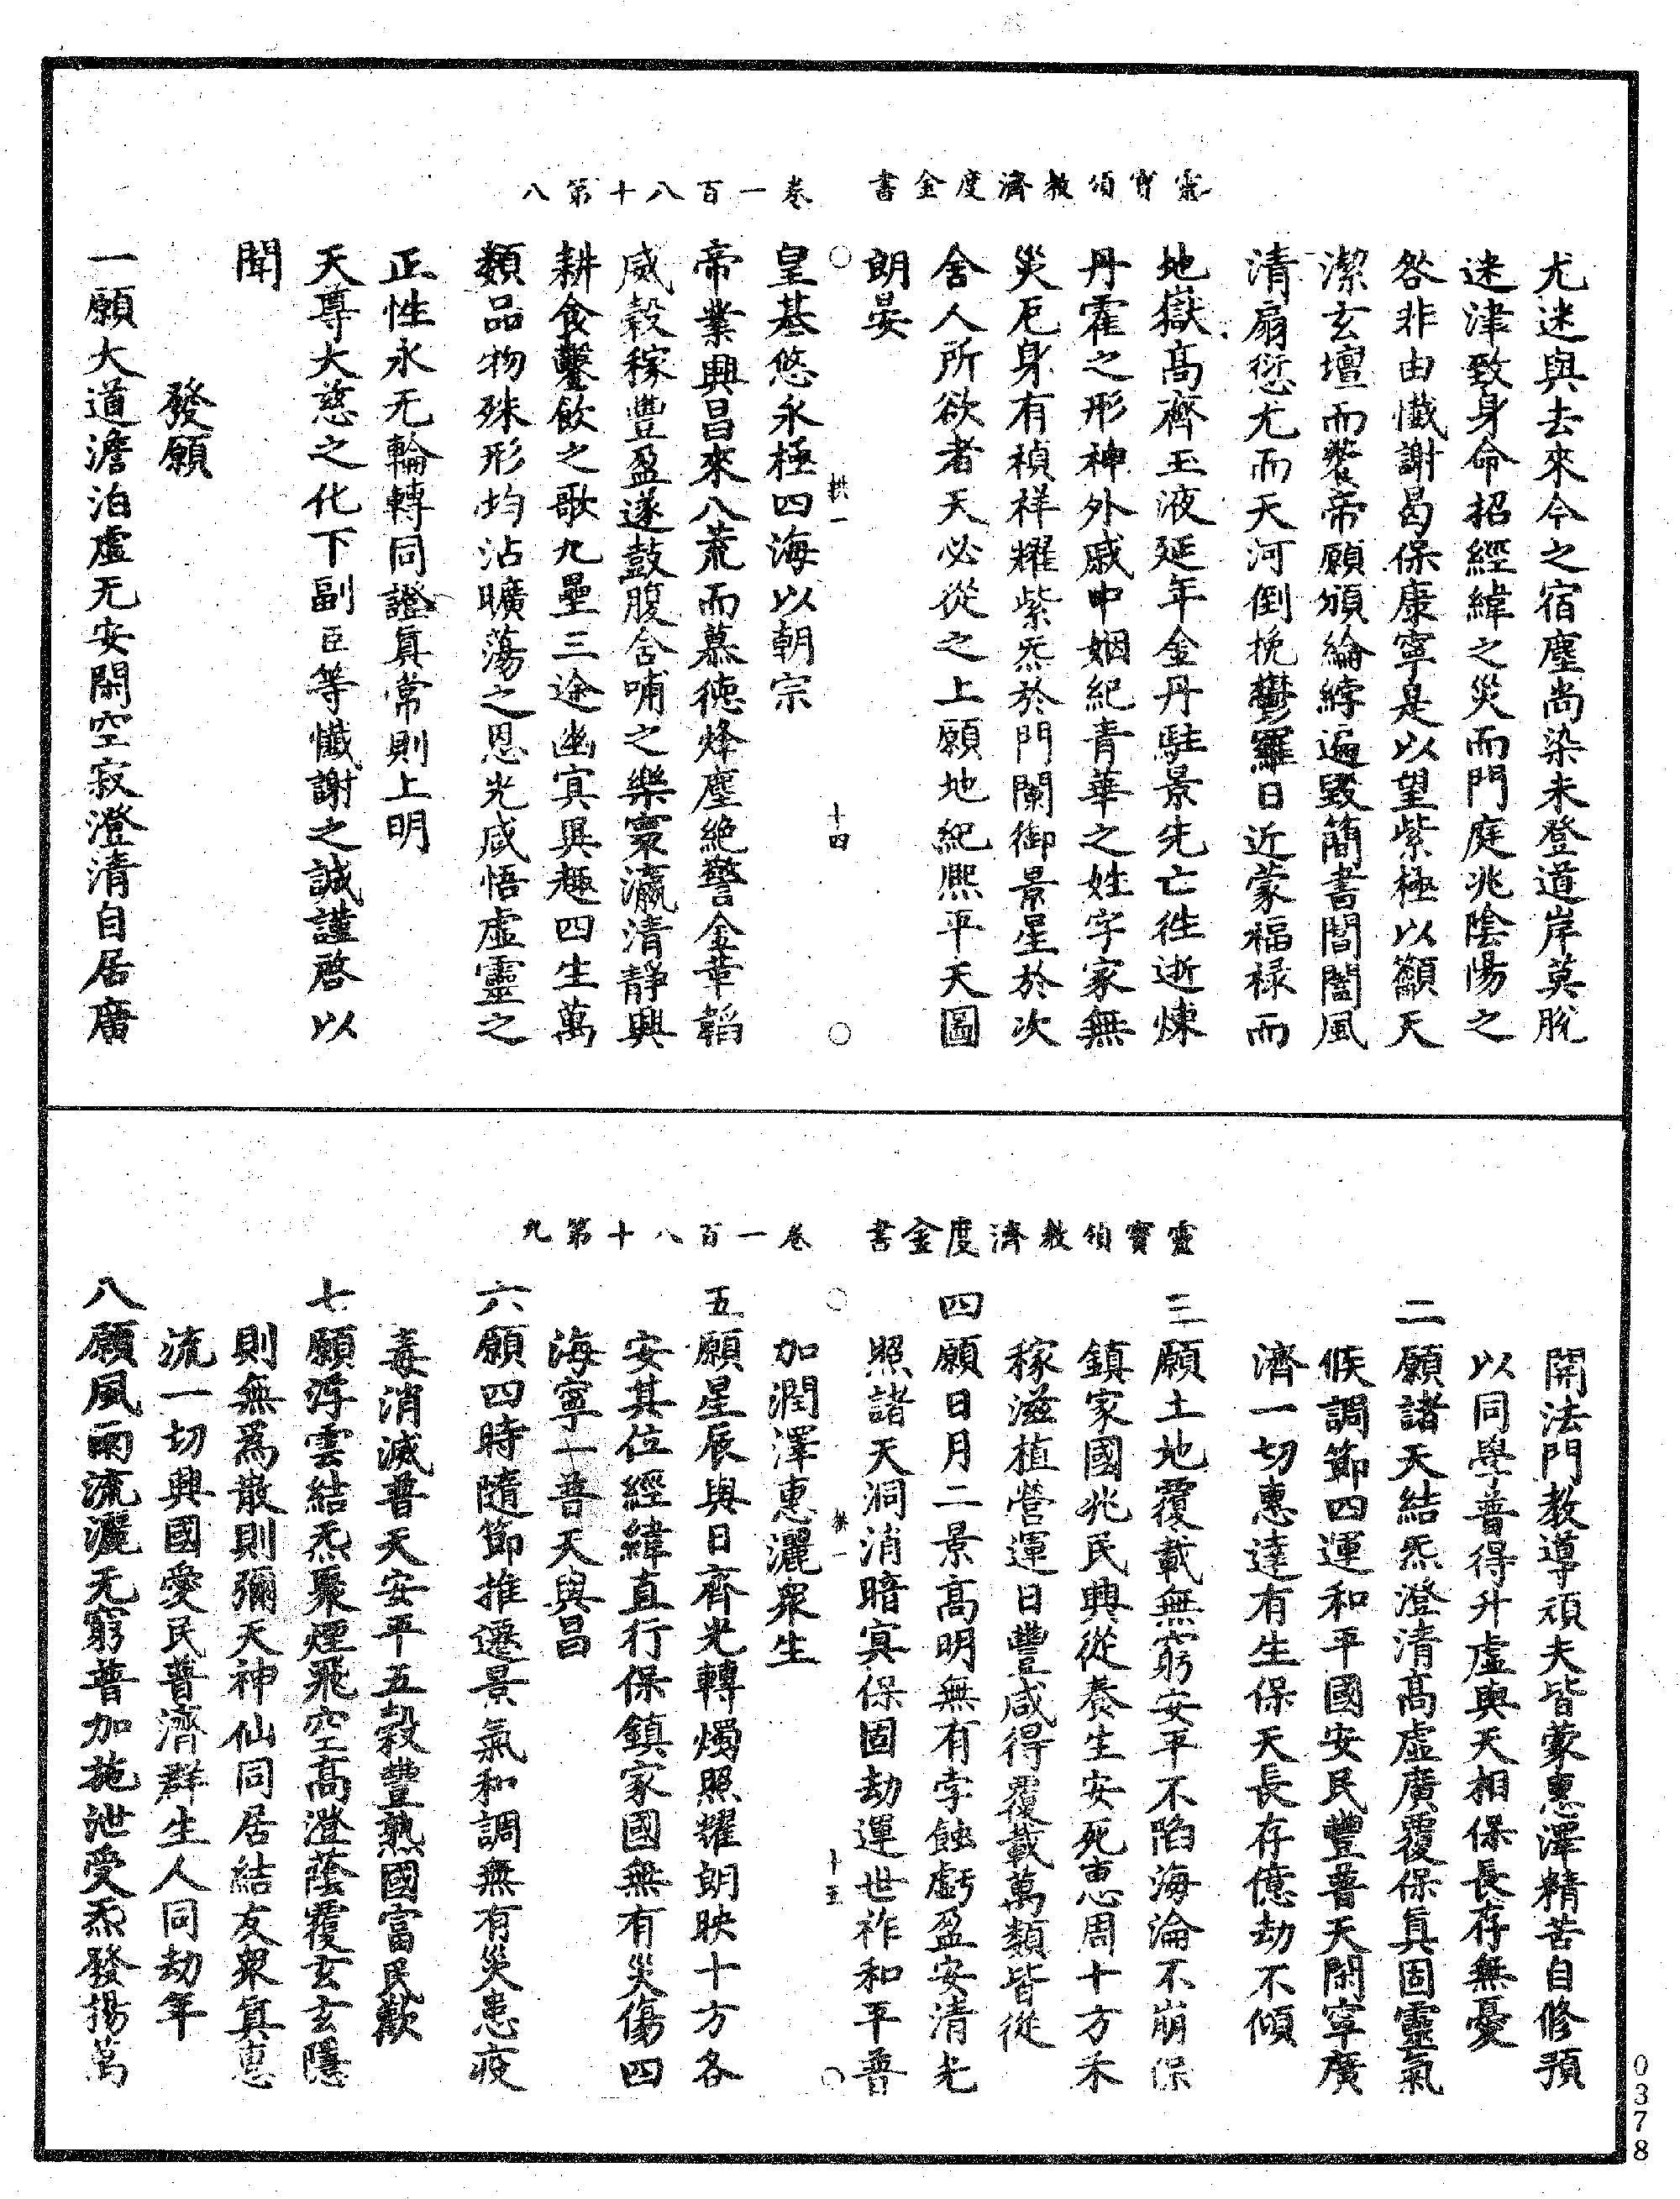 靈寶領教濟度金書　卷一百八十第八
尤迷與去來今之宿塵尚染未登道岸莫脫
迷津致身命招經緯之災而門庭兆陰陽之
咎非由懺謝曷保康寧是以望紫極以籲天
潔玄壇而襲帝願頒綸綍遍毀簡書閶闔風
清扇愆尤而天河倒挽鬱羅日近蒙福祿而
地獄高齊玉液延年金丹駐景先亡徃逝煉
丹霍之形神外戚中姻紀青華之姓字家無
災厄身有禎祥耀紫炁於門闌御景星於次
舍人所欲者天必從之上願地紀熈平天圖
朗晏
拱一　十四
皇基悠永極四海以朝宗
帝業興昌來八荒而慕德烽塵絶警金革韜
威穀稼豐盈遂鼓腹含哺之樂寰瀛清靜興
耕食鑿飲之歌九壘三途幽㝠異趣四生萬
類品物殊形均沾曠蕩之恩光咸悟虛靈之
正性永无輪轉同證眞常則上明
天尊大慈之化下副臣等懺謝之誠謹啓以
聞
發願
一願大道澹泊虛无安閑空寂澄清自居廣
靈寶領教濟度金書　卷一百八十第九
開法門教導頑夫皆蒙惠澤精苦自修預
以同學普得升虛與天相保長存無憂
二願諸天結炁澄清高虛廣覆保眞固靈氣
候調節四運和平國安民豐普天閑寜廣
濟一切惠達有生保天長存億劫不傾
三願土地覆載無窮安平不陷海淪不崩保
鎮家國兆民興從養生安死恵周十方禾
稼滋植營運日豐咸得覆載萬類皆從
四願日月二景高明無有孛蝕虧盈安清光
照諸天洞消暗㝠保固劫運世祚和平普
加潤澤惠灑衆生
拱一　十五
五願星辰與日齊光轉燭照耀朗映十方各
安其位經緯直行保鎮家國無有災傷四
海寧一普天與昌
六願四時隨節推遷景氣和調無有災患疫
毒消滅普天安平五穀豐熟國富民歡
七願浮雲結炁聚煙飛空高澄蔭覆玄玄隱
則無爲散則彌天神仙同居結友衆眞恵
流一切興國愛民普濟群生人同劫年
八願風雨流灑无窮普加施泄受炁發揚萬
0378